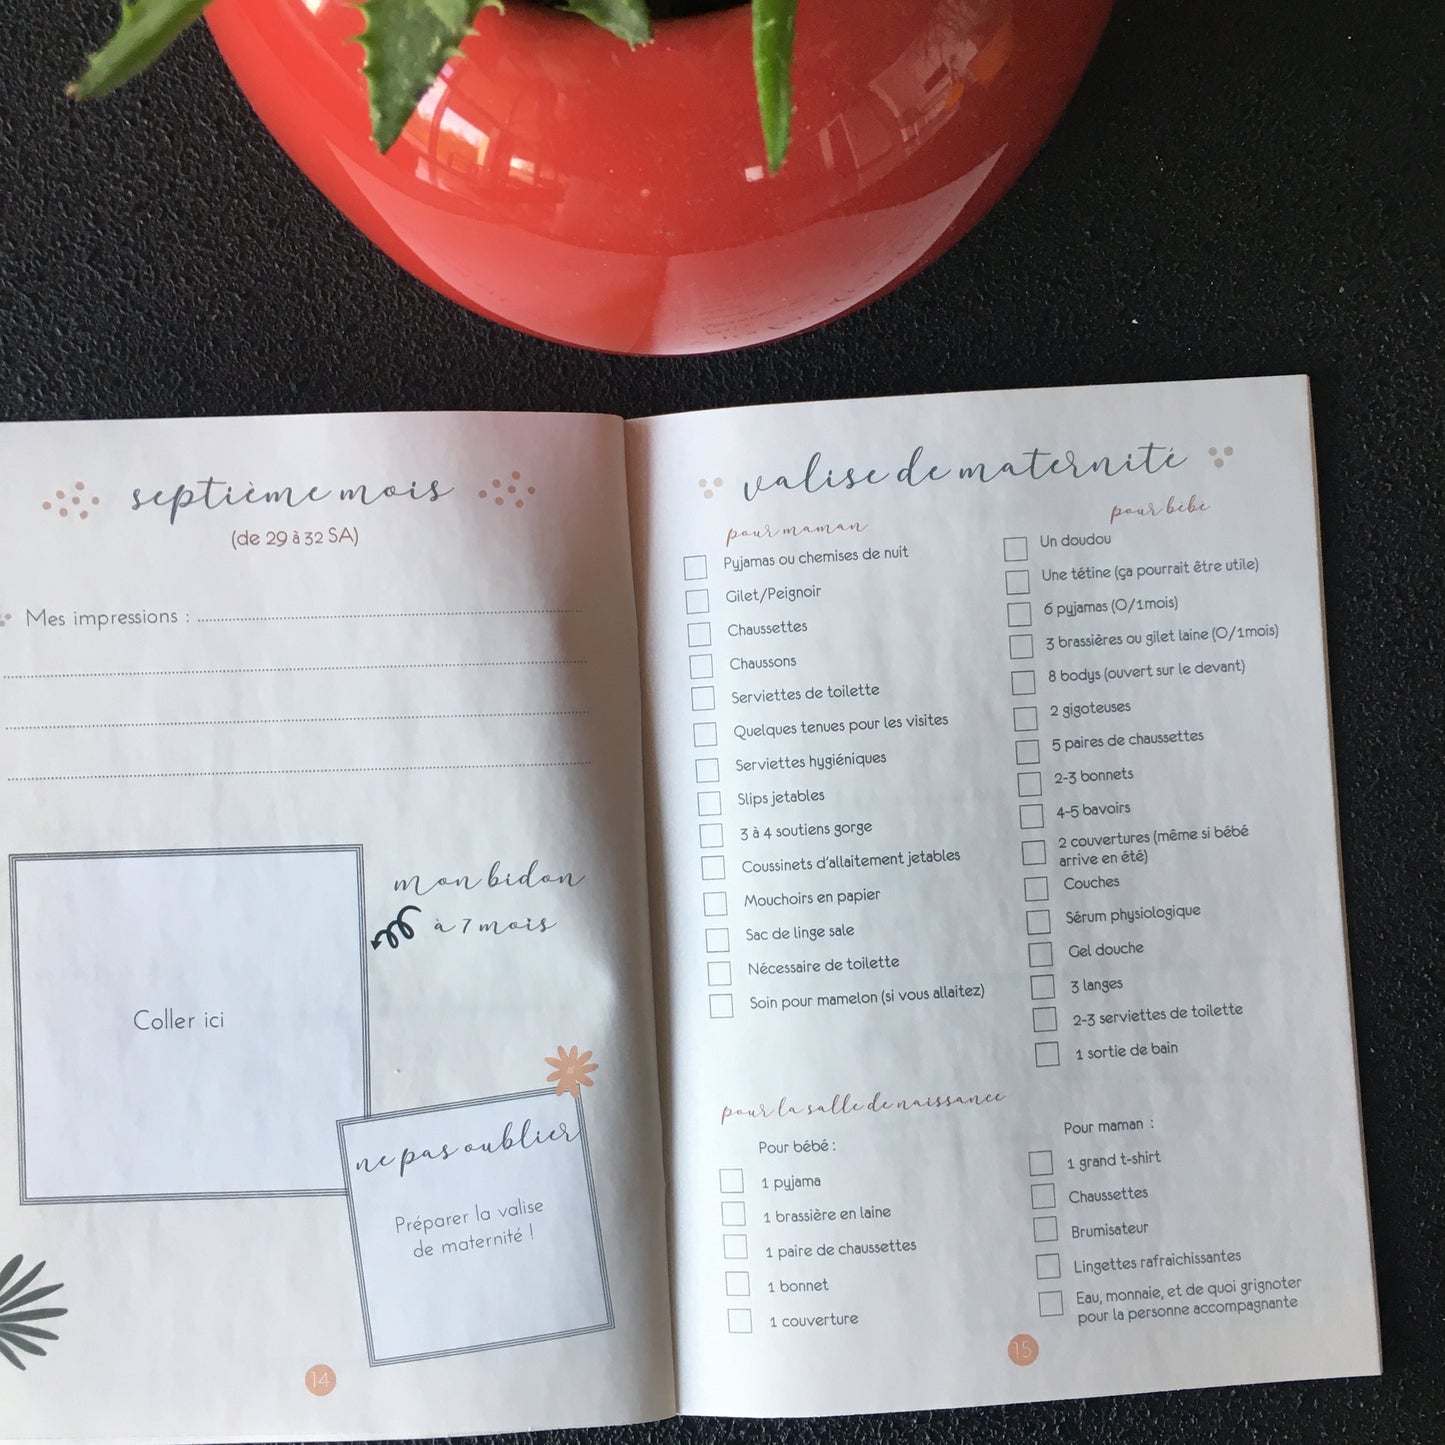 septième mois
(de 29 à 32 SA)
Mes impressions :
mon bidon
à 7 mois
Coller ici
ne pas oublier
Préparer la valise
de maternité !
14
valise de maternité
pour maman
Pyjamas ou chemises de nuit
Gilet/Peignoir
Chaussettes
Chaussons
Serviettes de toilette
Quelques tenues pour les visites
Serviettes hygiéniques
Slips jetables
3 à 4 soutiens gorge
Coussinets d'allaitement jetables
Mouchoirs en papier
Sac de linge sale
Nécessaire de toilette
Soin pour mamelon (si vous allaitez)
pour bébé
Un doudou
Une tétine (ça pourrait être utile)
6 pyjamas (0/1mois)
3 brassières ou gilet laine (0/1mois)
8 bodys (ouvert sur le devant)
2 gigoteuses
5 paires de chaussettes
2-3 bonnets
4-5 bavoirs
2 couvertures (même si bébé
arrive en été)
Couches
Sérum physiologique
Gel douche
3 langes
2-3 serviettes de toilette
1 sortie de bain
pour la salle de naissance
Pour bébé :
1 pyjama
1 brassière en laine
1 paire de chaussettes
1 bonnet
1 couverture
Pour maman :
1 grand t-shirt
Chaussettes
Brumisateur
Lingettes rafraichissantes
Eau, monnaie, et de quoi grignoter
pour la personne accompagnante
15